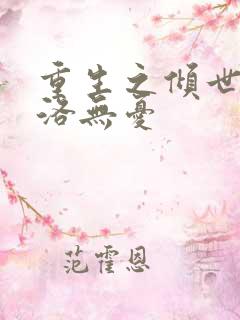 重生之傾世
洛無憂
范霍恩